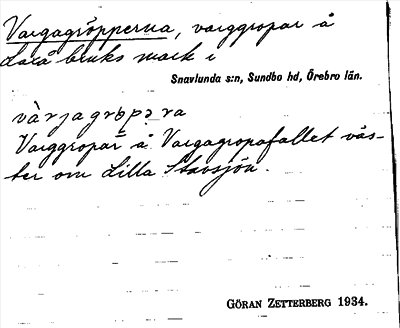 Vargagröpperna, varggropar å
Laxå bruks mark i
Snavlunda s:n, Sundbo hd, Örebro län.
Varggropar å Vargagropafallet väs-
ter om Lilla Stavsjön.
GÖRAN ZETTERBERG 1934.